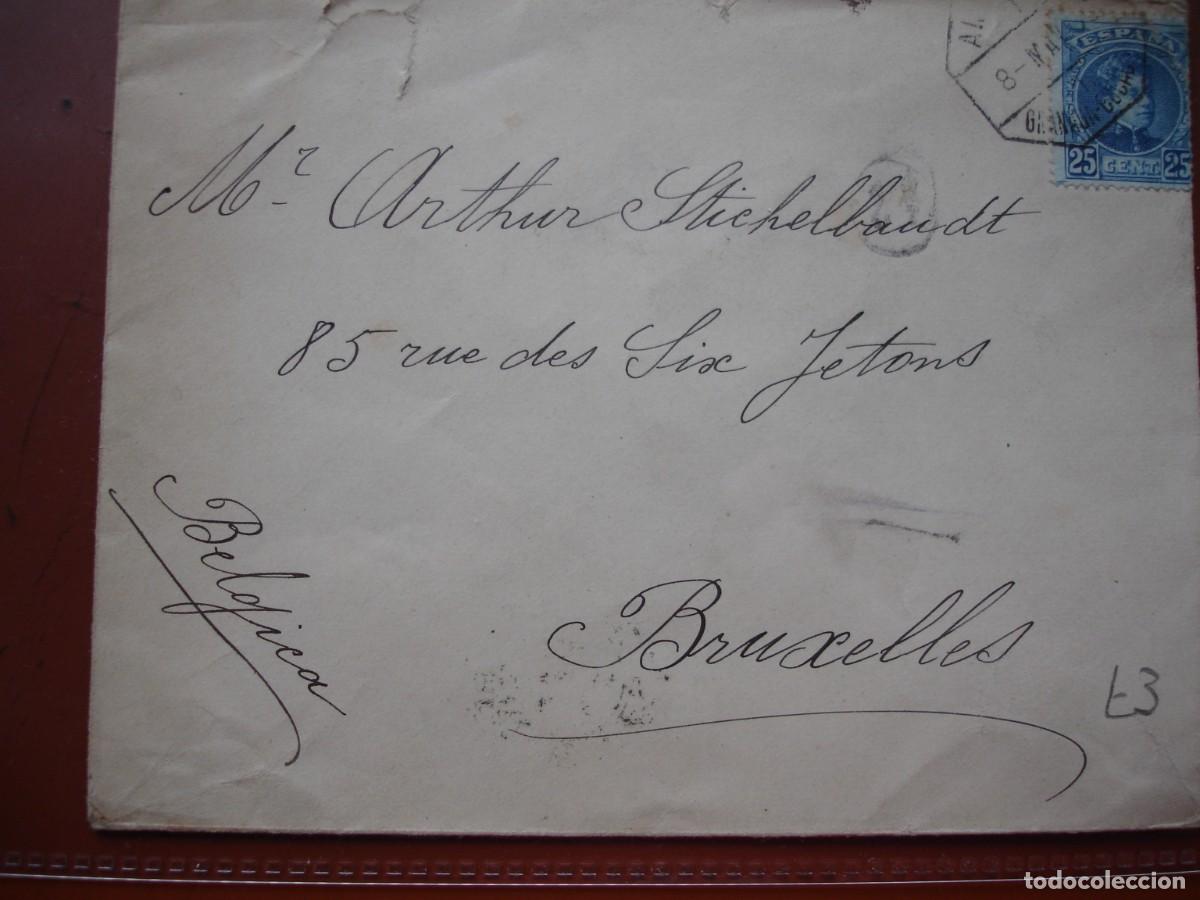 8 - MA
ESPAÑA
25 CENT. 25
Mr Arthur Stichelbaudt
85 rue des Six Jetons
Belgica
Bruxelles
t3
todocoleccion